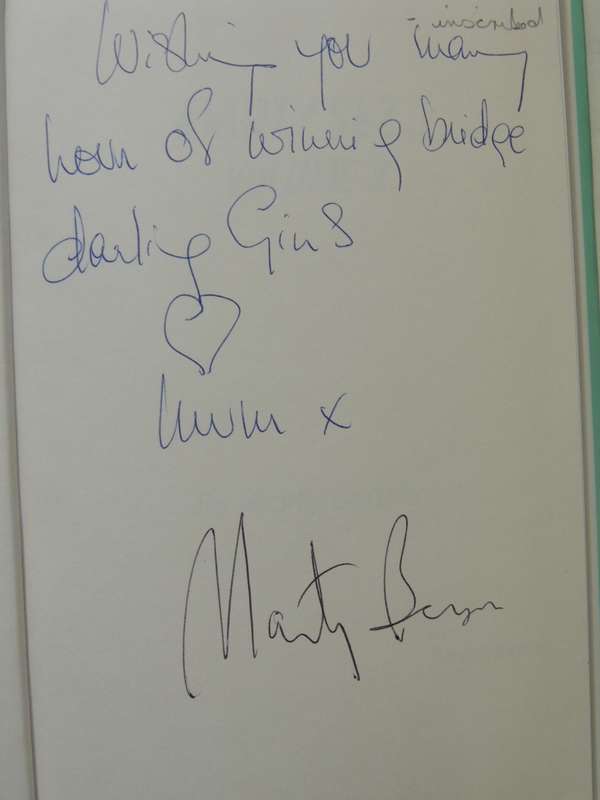 - inscribed
Wishing you many
hours of winning bridge
darling Gins
Mum x
Marty Bergen